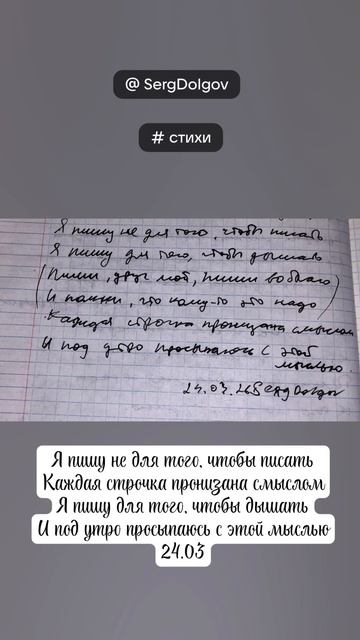 @ SergDolgov
# стихи
Я пишу не для того, чтобы писать
Я пишу для того, чтобы дышать
(Пиши, друг мой, пиши во благо)
(И помни, что кому-то это надо)
Каждая строчка пронизана смыслом
И под утро просыпаюсь с этой
мыслью.
24.03.26 SergDolgov
Я пишу не для того, чтобы писать
Каждая строчка пронизана смыслом
Я пишу для того, чтобы дышать
И под утро просыпаюсь с этой мыслью
24.03